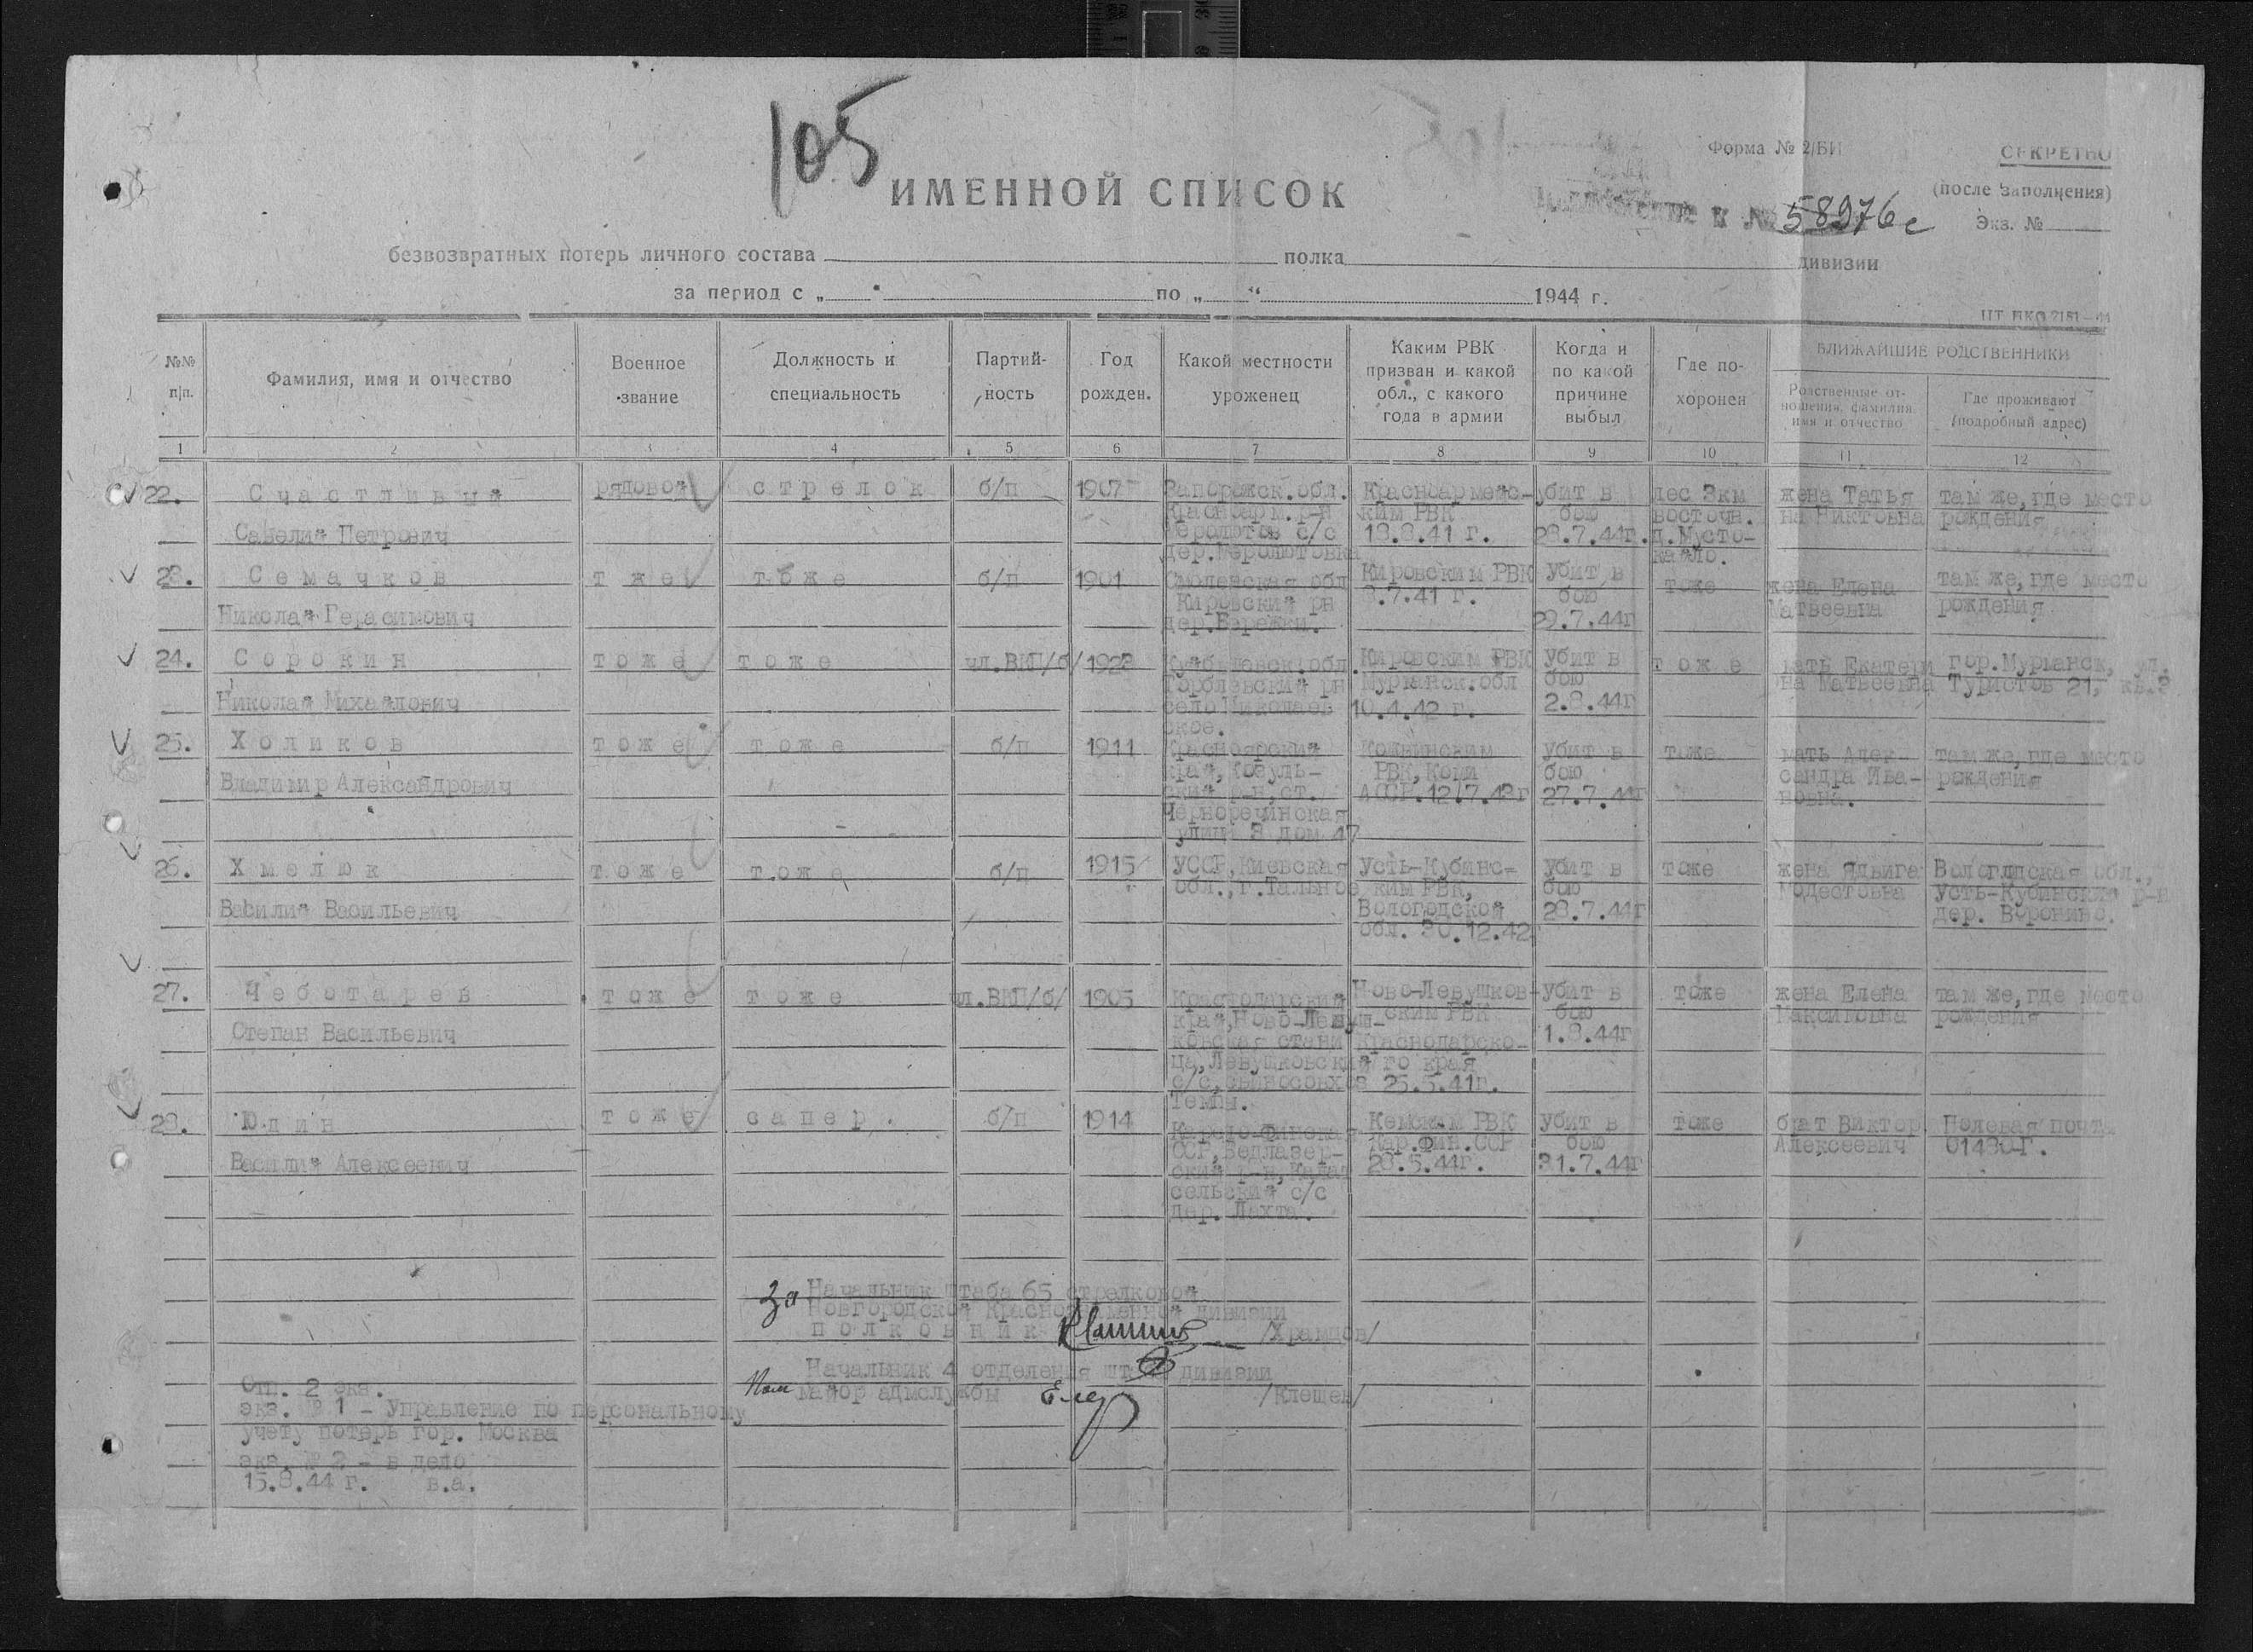 105
Форма № 2/БИ
СЕКРЕТНО
(после заполнения)
Экз. №
ИМЕННОЙ СПИСОК
к № 58976с
безвозвратных потерь личного состава полка дивизии
за период с „ “ по „ “ 1944 г.
№№ п|п.
Фамилия, имя и отчество
Военное звание
Должность и специальность
Партий-ность
Год рожден.
Какой местности уроженец
Каким РВК призван и какой обл., с какого года в армии
Когда и по какой причине выбыл
Где по-хоронен
БЛИЖАЙШИЕ РОДСТВЕННИКИ
Родственные от-ношения, фамилия, имя и отчество
Где проживают (подробный адрес)
1 2 3 4 5 6 7 8 9 10 11 12
22. Счастливый рядовой стрелок б/п 1907 Запорожск.обл. Красноармейс- убит в лес 3км жена Татья там же, где место
Красноарм.р-н ким РВК бою восточн. на рождения
Савелий Петрович с/с 18.8.41 г. 28.7.44г. д.Мусто-
дер. каало.
23. Семачков т же тоже б/п 1901 Смоленская обл Кировским РВК убит в тоже жена Елена там же, где место
Кировский рн .7.41 г. бою Матвеевна рождения
Николай Герасимович дер.Бережки. 29.7.44г
24. Сорокин тоже тоже чл.ВКП/б/ 1923 Куйбышевск.обл. Кировским РВК убит в тоже мать Екатери гор.Мурманск, ул.
рн Мурманск.обл бою на Матвеевна Туристов 21, кв.3
Николай Михайлович село Николаев 10.4.42 г. 2.8.44г
ское.
25. Холиков тоже тоже б/п 1911 Красноярский РВК, Коми убит в тоже мать Алек- там же, где место
край, Козуль- АССР. бою сандра Ива- рождения
Владимир Александрович ский р-н, ст. 27.7.44г новна.
Чернореченская
улица 3 дом 47
26. Хмелюк тоже тоже б/п 1915 УССР, Киевская Усть-Кубинс- убит в тоже жена Ядвига Вологодская обл.,
обл., г.Тальное ким РВК, бою Модестовна Усть-Кубинский р-н
Василий Васильевич Вологодской 28.7.44г дер. Воронино.
обл. 30.12.42г
27. Чеботарев тоже тоже чл.ВКП/б/ 1905 Краснодарский Ново-Левушков- убит в тоже жена Елена там же, где место
край, Ново-Левуш- ским РВК бою Максимовна рождения
Степан Васильевич ковская стани Краснодарско- 1.8.44г
ца, Левушковский го края
с/с, 25.5.41г.
Темпы.
28. Юдин тоже сапер. б/п 1914 Карело-Финская Кемским РВК убит в тоже брат Виктор Полевая почта
ССР, Ведлозер- Кар.Фин.ССР бою Алексеевич 01430-Г.
Василий Алексеевич ский р-н, 28.5.44г. 31.7.44г
сельский с/с
дер. Лахта.
За Начальник штаба 65 стрелковой
Новгородской Краснознаменной дивизии
полковник /Храмцов/
Начальник 4 отделения штаба дивизии
Пом майор адмслужбы /Клещев/
Отп. 2 экз.
экз. № 1 – Управление по персональному
учету потерь гор. Москва
экз. № 2 – в дело
15.8.44 г. в.а.